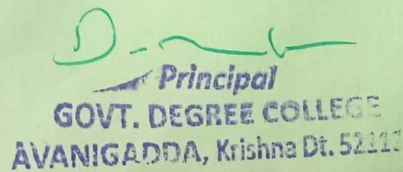 Principal
GOVT. DEGREE COLLEGE
AVANIGADDA, Krishna Dt.